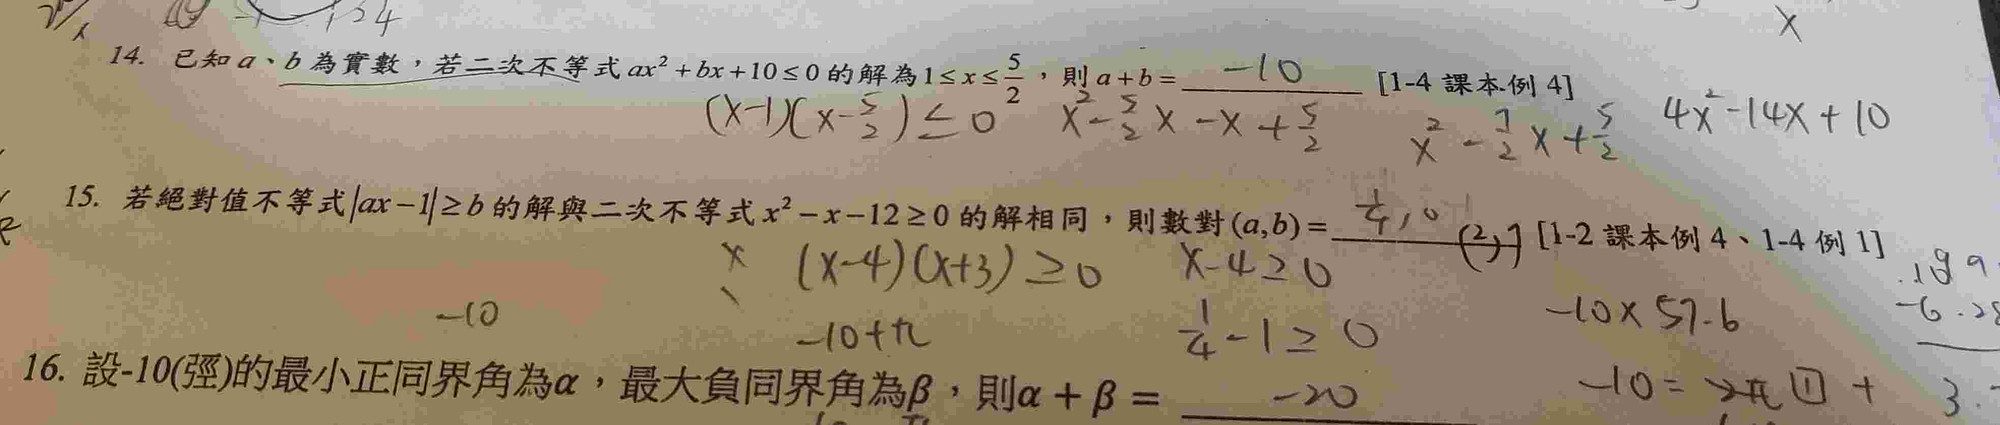 14. 已知 a、b 為實數，若二次不等式 ax² + bx + 10 ≤ 0 的解為 1 ≤ x ≤ 5/2，則 a + b = -10 [1-4 課本例 4]
(x-1)(x-5/2) ≤ 0 x² - 5/2 x - x + 5/2 x² - 7/2 x + 5/2 4x² - 14x + 10
15. 若絕對值不等式 |ax - 1| ≥ b 的解與二次不等式 x² - x - 12 ≥ 0 的解相同，則數對 (a,b) = 1/4, 0 (2,7) [1-2 課本例 4、1-4 例 1]
(x-4)(x+3) ≥ 0 x-4 ≥ 0
-10 -10+π 1/4 - 1 ≥ 0 -10 × 57.6
16. 設-10(弳)的最小正同界角為α，最大負同界角為β，則α + β = -20
-10 = 2π